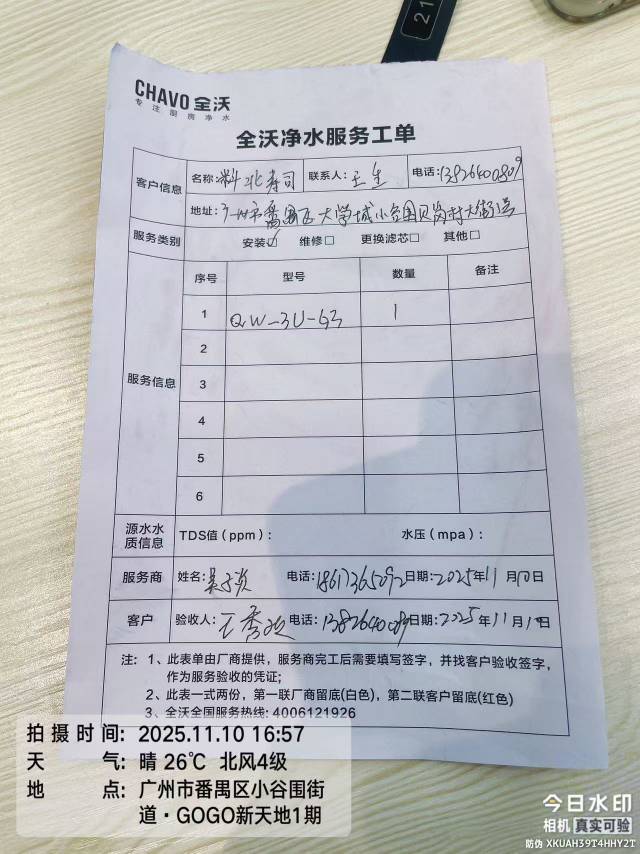 21
CHAVO 全沃
专注厨房净水
全沃净水服务工单
客户信息 名称: 料北寿司 联系人: 王生 电话: 13826400809
地址: 广州市番禺区大学城小谷围贝岗村大街1号
服务类别 安装☑ 维修□ 更换滤芯□ 其他□
服务信息 序号 型号 数量 备注
1 QW-3U-G3 1
2
3
4
5
6
源水水质信息 TDS值(ppm): 水压(mpa):
服务商 姓名: 电话: 18617365092 日期: 2025年11月10日
客户 验收人: 王 电话: 日期: 2025年11月10日
注: 1、此表单由厂商提供,服务商完工后需要填写签字,并找客户验收签字,
作为服务验收的凭证;
2、此表一式两份,第一联厂商留底(白色),第二联客户留底(红色)
3、全沃全国服务热线: 4006121926
拍摄时间: 2025.11.10 16:57
天气: 晴 26℃ 北风4级
地点: 广州市番禺区小谷围街
道·GOGO新天地1期
今日水印
相机 真实可验
防伪 XKUAH39T4HHY2T